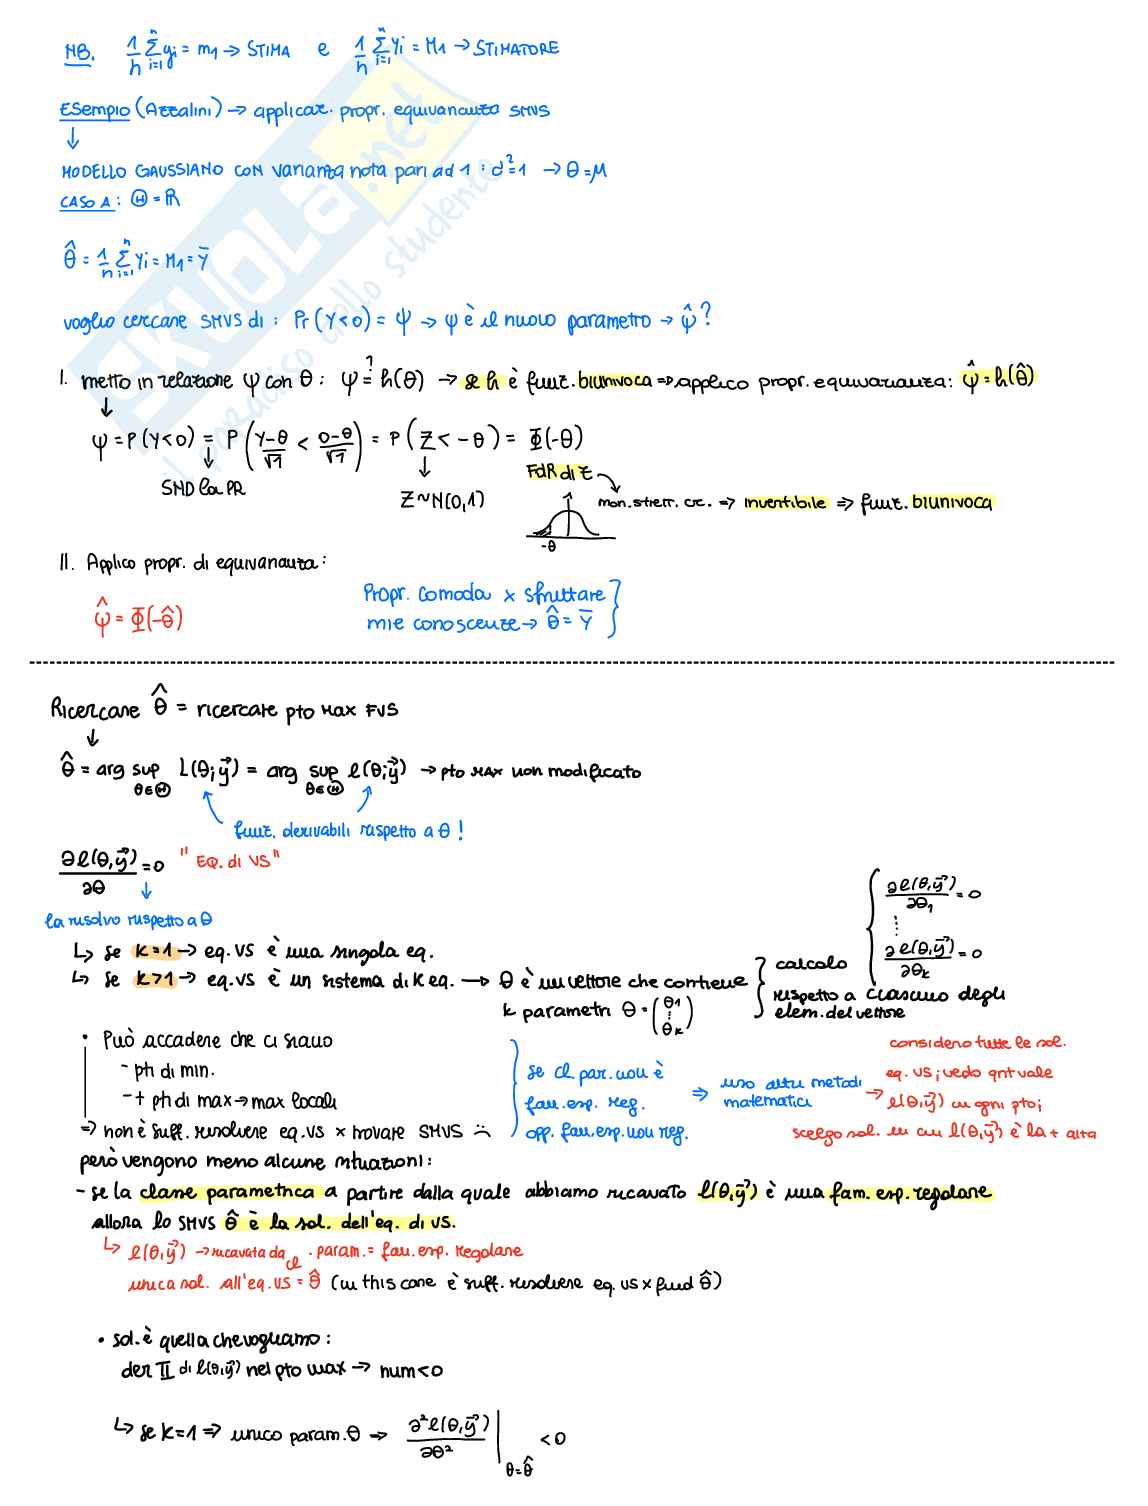 NB. 1/n Σ_{i=1}^{n} yi = m1 → STIMA e 1/n Σ_{i=1}^{n} Yi = M1 → STIMATORE
ESempio (Azzalini) → applicaz. propr. equivarianza SMVS
↓
MODELLO GAUSSIANO CON varianza nota pari ad 1 : σ²=1 → θ=μ
CASO A : Θ = ℝ
θ̂ = 1/n Σ_{i=1}^{n} Yi = M1 = Ȳ
voglio cercare SMVS di : Pr(Y<0) = ψ → ψ è il nuovo parametro → ψ̂ ?
I. metto in relazione ψ con θ : ψ =? h(θ) → se h è funz. biunivoca ⇒ applico propr. equivarianza: ψ̂ = h(θ̂)
↓
ψ = P(Y<0) = P( (Y-θ)/√1 < (0-θ)/√1 ) = P( Z < -θ ) = Φ(-θ)
FdR di Z
STND la PR
Z ~ N(0,1)
mon. strett. cr. → invertibile ⇒ funz. biunivoca
-θ
II. Applico propr. di equivarianza:
ψ̂ = Φ(-θ̂)
Propr. comoda x sfruttare
mie conoscenze → θ̂ = Ȳ
Ricercare θ̂ = ricercare pto max FVS
↓
θ̂ = arg sup_{θ∈Θ} L(θ; y⃗) = arg sup_{θ∈Θ} l(θ; y⃗) → pto MAX non modificato
funz. derivabili rispetto a θ !
∂l(θ, y⃗)/∂θ = 0 " EQ. di VS "
la risolvo rispetto a θ
↳ se K=1 → eq. VS è una singola eq.
↳ se K>1 → eq. VS è un sistema di K eq. → θ è un vettore che contiene
k parametri θ = (θ1 ⋮ θk)
calcolo
rispetto a ciascuno degli
elem. del vettore
∂l(θ, y⃗)/∂θ1 = 0
⋮
∂l(θ, y⃗)/∂θk = 0
• Può accadere che ci siano
- pti di min.
- + pti di max → max locali
⇒ non è suff. risolvere eq. VS x trovare SMVS :(
se cl par. non è
fam. esp. reg.
opp. fam. esp. non reg.
⇒ uso altri metodi
matematici
→ considero tutte le sol.
eq. VS ; vedo qnt vale
l(θ, y⃗) in ogni pto;
scelgo sol. in cui l(θ, y⃗) è la + alta
però vengono meno alcune situazioni :
- se la classe parametrica a partire dalla quale abbiamo ricavato l(θ, y⃗) è una fam. esp. regolare
allora lo SMVS θ̂ è la sol. dell'eq. di VS.
↳ l(θ, y⃗) → ricavata da cl. param. = fam. esp. regolare
unica sol. all'eq. VS = θ̂ (in this case è suff. risolvere eq. VS x find θ̂)
• sol. è quella che vogliamo :
der II di l(θ, y⃗) nel pto max → num < 0
↳ se K=1 ⇒ unico param. θ → ∂²l(θ, y⃗)/∂θ² |_{θ=θ̂} < 0
SKUOLA.net
il paradiso dello studente